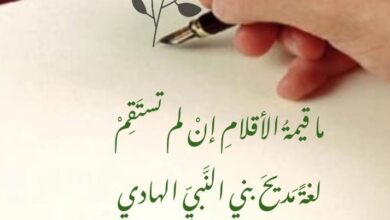 ما قيمةُ الأقلامِ إنْ لم تستَقِمْ
لغةً مَديحَ بني النَّبيّ الهادي